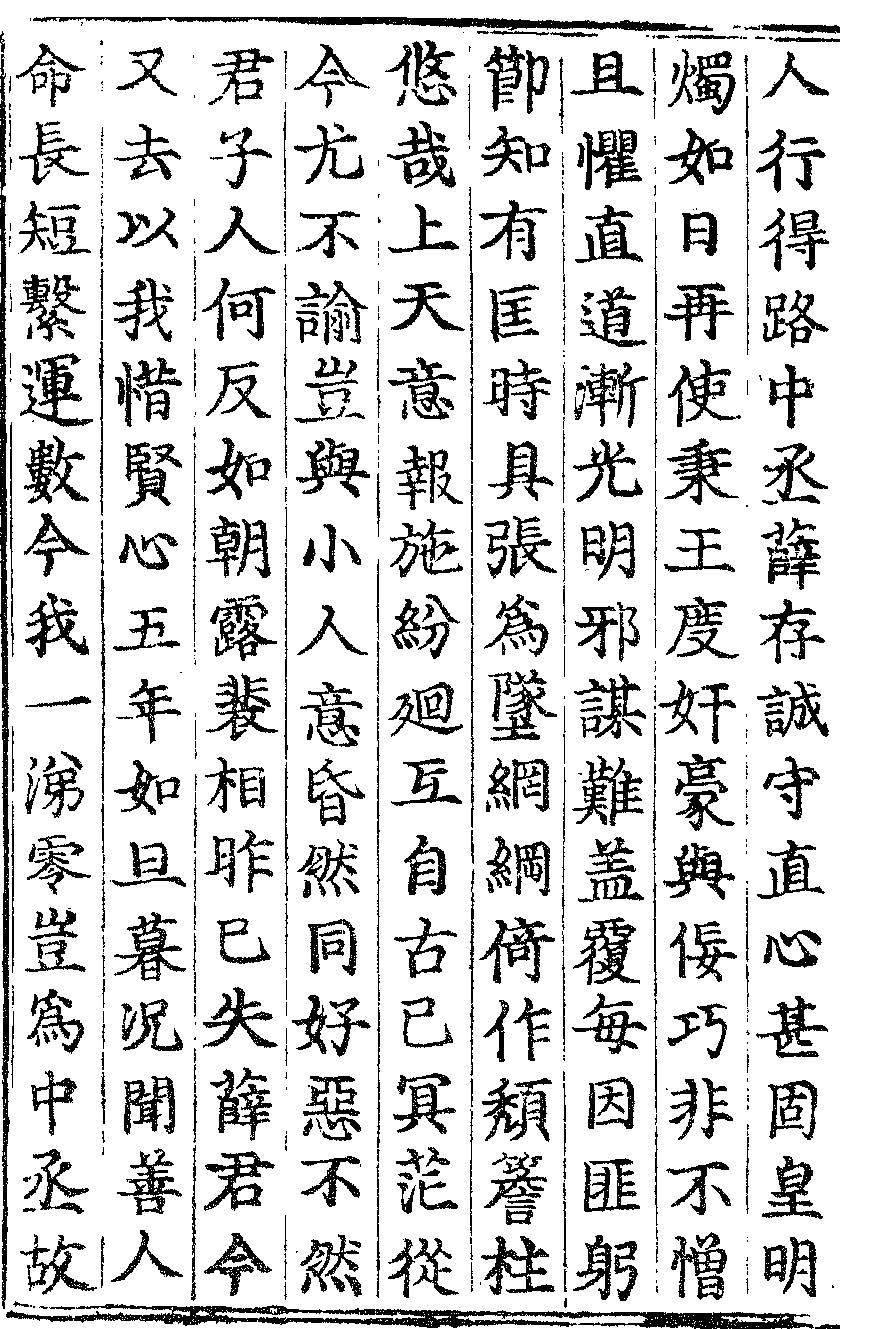 人行得路中丞薛存誠守直心甚固皇明
燭如日再使秉王度奸豪與佞巧非不憎
且懼直道漸光明邪謀難盖覆每因匪躬
節知有匡時具張爲墜網綱倚作頹簷柱
悠哉上天意報施紛廻互自古已冥茫從
今尤不諭豈與小人意昏然同好惡不然
君子人何反如朝露裴相昨已失薛君今
又去以我惜賢心五年如旦暮况聞善人
命長短繫運數今我一涕零豈爲中丞故